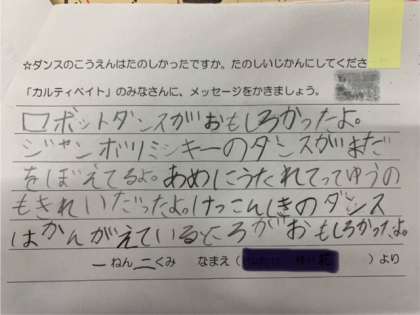 ☆ダンスのこうえんはたのしかったですか。たのしいじかんにしてくださ
「カルティベイト」のみなさんに、メッセージをかきましょう。
ロボットダンスがおもしろかったよ。
ジャンボリミッキーのダンスがまだ
をぼえてるよ。あめにうたれてってゆうの
もきれいだったよ。けっこんしきのダンス
はかんがえているところがおもしろかったよ。
一ねん二くみ なまえ( )より